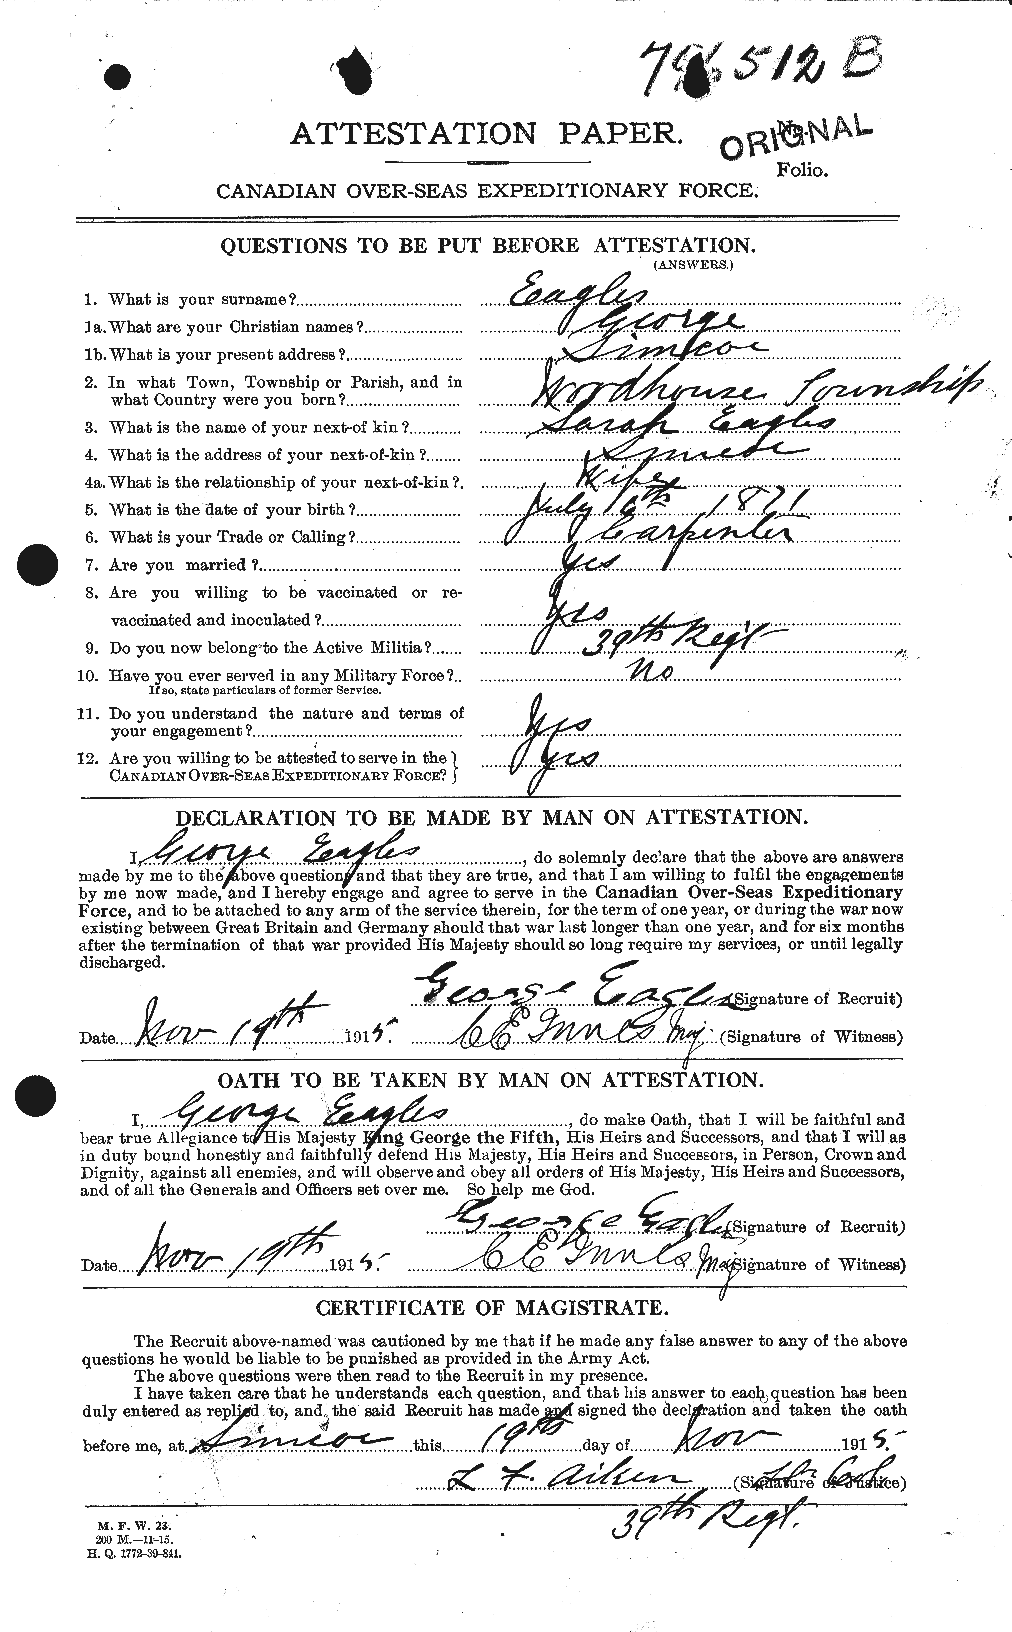 796512 B
ATTESTATION PAPER.
No.
ORIGINAL
Folio.
CANADIAN OVER-SEAS EXPEDITIONARY FORCE.
QUESTIONS TO BE PUT BEFORE ATTESTATION.
(ANSWERS.)
1. What is your surname?.......... Eagles
1a. What are your Christian names?.......... George
1b. What is your present address?.......... Simcoe
2. In what Town, Township or Parish, and in
what Country were you born?.......... Woodhouse Township
3. What is the name of your next-of kin?.......... Sarah Eagles
4. What is the address of your next-of-kin?.......... Simcoe
4a. What is the relationship of your next-of-kin?. Wife
5. What is the date of your birth?.......... July 16th 1871
6. What is your Trade or Calling?.......... Carpenter
7. Are you married?.......... Yes
8. Are you willing to be vaccinated or re-
vaccinated and inoculated?.......... Yes
9. Do you now belong to the Active Militia?...... 39th Regt
10. Have you ever served in any Military Force?.. No
If so, state particulars of former Service.
11. Do you understand the nature and terms of
your engagement?.......... Yes
12. Are you willing to be attested to serve in the
CANADIAN OVER-SEAS EXPEDITIONARY FORCE? Yes
DECLARATION TO BE MADE BY MAN ON ATTESTATION.
I, George Eagles, do solemnly declare that the above are answers
made by me to the above questions and that they are true, and that I am willing to fulfil the engagements
by me now made, and I hereby engage and agree to serve in the Canadian Over-Seas Expeditionary
Force, and to be attached to any arm of the service therein, for the term of one year, or during the war now
existing between Great Britain and Germany should that war last longer than one year, and for six months
after the termination of that war provided His Majesty should so long require my services, or until legally
discharged.
George Eagles (Signature of Recruit)
Date.... Nov 19th 1915. C E Innes Maj. (Signature of Witness)
OATH TO BE TAKEN BY MAN ON ATTESTATION.
I, George Eagles, do make Oath, that I will be faithful and
bear true Allegiance to His Majesty King George the Fifth, His Heirs and Successors, and that I will as
in duty bound honestly and faithfully defend His Majesty, His Heirs and Successors, in Person, Crown and
Dignity, against all enemies, and will observe and obey all orders of His Majesty, His Heirs and Successors,
and of all the Generals and Officers set over me. So help me God.
George Eagles (Signature of Recruit)
Date.... Nov 19th 1915. C E Innes Maj (Signature of Witness)
CERTIFICATE OF MAGISTRATE.
The Recruit above-named was cautioned by me that if he made any false answer to any of the above
questions he would be liable to be punished as provided in the Army Act.
The above questions were then read to the Recruit in my presence.
I have taken care that he understands each question, and that his answer to each question has been
duly entered as replied to, and the said Recruit has made and signed the declaration and taken the oath
before me, at Simcoe this 19th day of Nov 1915.
L F. Aiken Lt Col (Signature of Justice)
39th Regt.
M. F. W. 23.
200 M.—11-15.
H. Q. 1772-39-841.